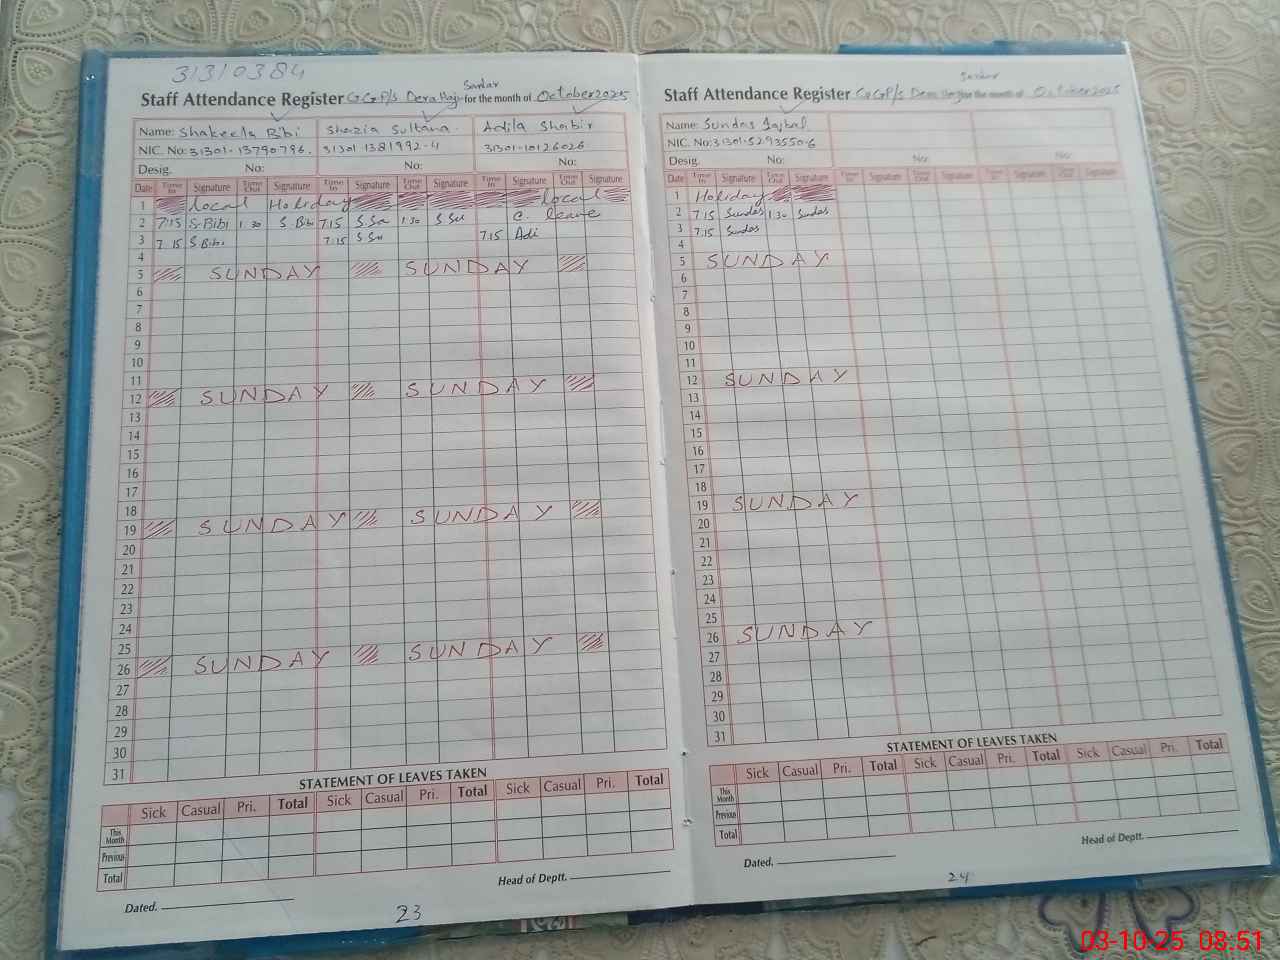 31310384
Sardar
Staff Attendance Register GGP/s Dera Haji for the month of October 2025
Name: Shakeela Bibi Shazia Sultana Adila Shabir
NIC. No: 31301-13790796. 31301 1381992-4 31301-10126026
Desig. No: No: No:
Date Time In Signature Time Out Signature Time In Signature Time Out Signature Time In Signature Time Out Signature
1 local Holiday local
2 7:15 S.Bibi 1:30 S.Bibi 7:15 S.Su 1:30 S Su C. leave
3 7:15 S.Bibi 7:15 S Su 7:15 Adi
4
5 SUNDAY SUNDAY
6
7
8
9
10
11
12 SUNDAY SUNDAY
13
14
15
16
17
18
19 SUNDAY SUNDAY
20
21
22
23
24
25
26 SUNDAY SUNDAY
27
28
29
30
31
STATEMENT OF LEAVES TAKEN
Sick Casual Pri. Total Sick Casual Pri. Total Sick Casual Pri. Total
This Month
Previous
Total
Dated. Head of Deptt.
23
Sardar
Staff Attendance Register GGP/s Dera Haji for the month of October 2025
Name: Sundas Iqbal
NIC. No: 31301-5293550-6
Desig. No: No: No:
Date Time In Signature Time Out Signature Time In Signature Time Out Signature Time In Signature Time Out Signature
1 Holiday
2 7:15 Sundas 1:30 Sundas
3 7:15 Sundas
4
5 SUNDAY
6
7
8
9
10
11
12 SUNDAY
13
14
15
16
17
18
19 SUNDAY
20
21
22
23
24
25
26 SUNDAY
27
28
29
30
31
STATEMENT OF LEAVES TAKEN
Sick Casual Pri. Total Sick Casual Pri. Total Sick Casual Pri. Total
This Month
Previous
Total
Dated. Head of Deptt.
24
03-10-25 08:51